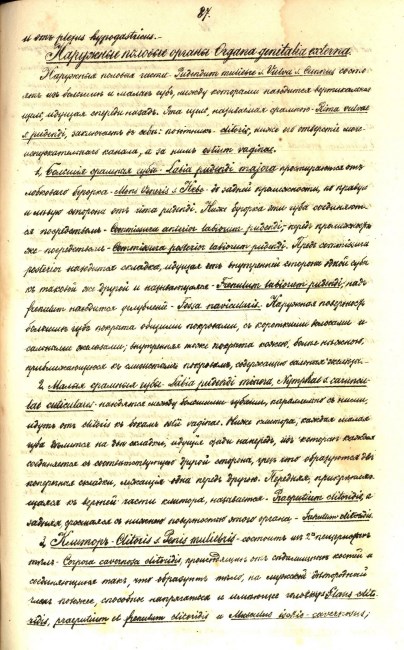 87.
и отъ plexus hypogastricus.
Наружные половые органы Organa genitalia externa.
Наружныя половыя части Pudendum muliebre s. Vulva s. Cunnus состо-
ятъ изъ большихъ и малыхъ губъ, между которыми находится вертикальная
щель, идущая спереди назадъ. Эта щель, называемая срамною Rima vulvae
s. pudendi, заключаетъ въ себѣ: похотникъ clitoris, ниже его отверстіе моче-
испускательнаго канала, а за нимъ ostium vaginae.
1, Большія срамныя губы Labia pudendi majora простираются отъ
лобковаго бугорка Mons Veneris s. Pubis до задней промежности, по правую
и лѣвую сторону отъ rima pudendi. Ниже бугорка эти губы соединяются
посредствомъ Commissura anterior labiorum pudendi; передъ промежностью
же посредствомъ Commissura posterior labiorum pudendi. Предъ commissura
posterior находится складка, идущая отъ внутренней стороны одной губы
къ таковой же другой и называющаяся Frenulum labiorum pudendi, надъ
frenulum находится углубленіе Fossa navicularis. Наружная поверхность
большихъ губъ покрыта общими покровами, съ короткими волосами и
сальными железами; внутренняя тоже покрыта кожею, болѣе нѣжною,
приближающеюся къ слизистымъ покровамъ, содержащею сальныя железы.
2. Малыя срамныя губы Labia pudendi minora, Nymphae s. caruncu-
lae cuticulares находятся между большими губами, параллельно съ ними,
идутъ отъ clitoris къ бокамъ ostii vaginae. Ниже клитора, каждая малая
губа дѣлится на двѣ складки, идущія сзади напередъ, изъ которыхъ каждая
соединяется съ соотвѣтствующею другой стороны, чрезъ что образуются двѣ
складки, лежащія одна передъ другою. Передняя,
къ верхней части клитора, называется Praeputium clitoridis, а
задняя съ нижнею поверхностью этого органа Frenulum clitoridis.
3, Клиторъ Clitoris s. Penis muliebris состоитъ изъ 2хъ пещеристыхъ
тѣлъ Corpora cavernosa clitoridis, происходящихъ отъ сѣдалищныхъ костей и
соединяющихся такъ, что образуютъ тѣло, на мужской дѣтородный
членъ похожее, способное напрягаться и имѣющее головку Glans clito-
ridis, praeputium et frenulum clitoridis и Musculus ischio-cavernosus;